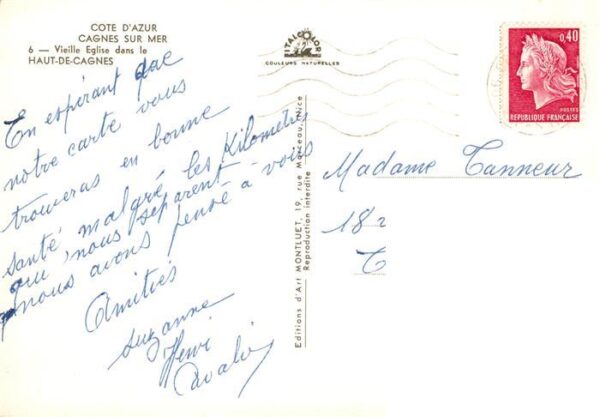 COTE D'AZUR
CAGNES SUR MER
6 — Vieille Eglise dans le
HAUT-DE-CAGNES
En espérant que
notre carte vous
trouveras en bonne
santé malgré les Kilometres
qui nous séparent
nous avons pensé à vous
Amitiés
Suzanne
Henri
ITALCOLOR
COULEURS NATURELLES
Editions d'Art MONTLUET, 19, rue Marceau, Nice
Reproduction interdite
0,40
POSTES
REPUBLIQUE FRANÇAISE
Madame Tanneur
182